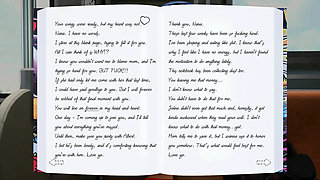 Your wings were ready, but my heart was not.
Nana. I have no words.
I stare at this blank page, trying to fill it for you.
All I can think of is WHY!?
I know you wouldn't want me to blame mom, and I'm
trying so hard for you, BUT FUCK!!!
If she had only let me come with her that last time,
I could have said goodbye to you. But I will forever
be robbed of that final moment with you.
You will live on forever in my heart and
One day - I'm coming up to you, and I'll tell
you about everything you've missed.
Until then, make sure you party with
I bet he's been lonely, and it's comforting knowing that
you're with him. Love ya.
Thank you, Nana.
These last few weeks have been so fucking hard.
I've been sleeping and eating like shit. I know that's
why I feel like I have no energy, but I haven't found
the motivation to do anything lately.
This notebook has been collecting dust too.
You leaving me that money...
I don't know what to say.
You didn't have to do that for me.
didn't even get that much and, honestly, it got
kinda awkward when they read your will. I don't
know what to do with that money... yet.
Mom tells me to save it, but I wanna use it to honor
you somehow. That's what would feel best for me.
Love ya.